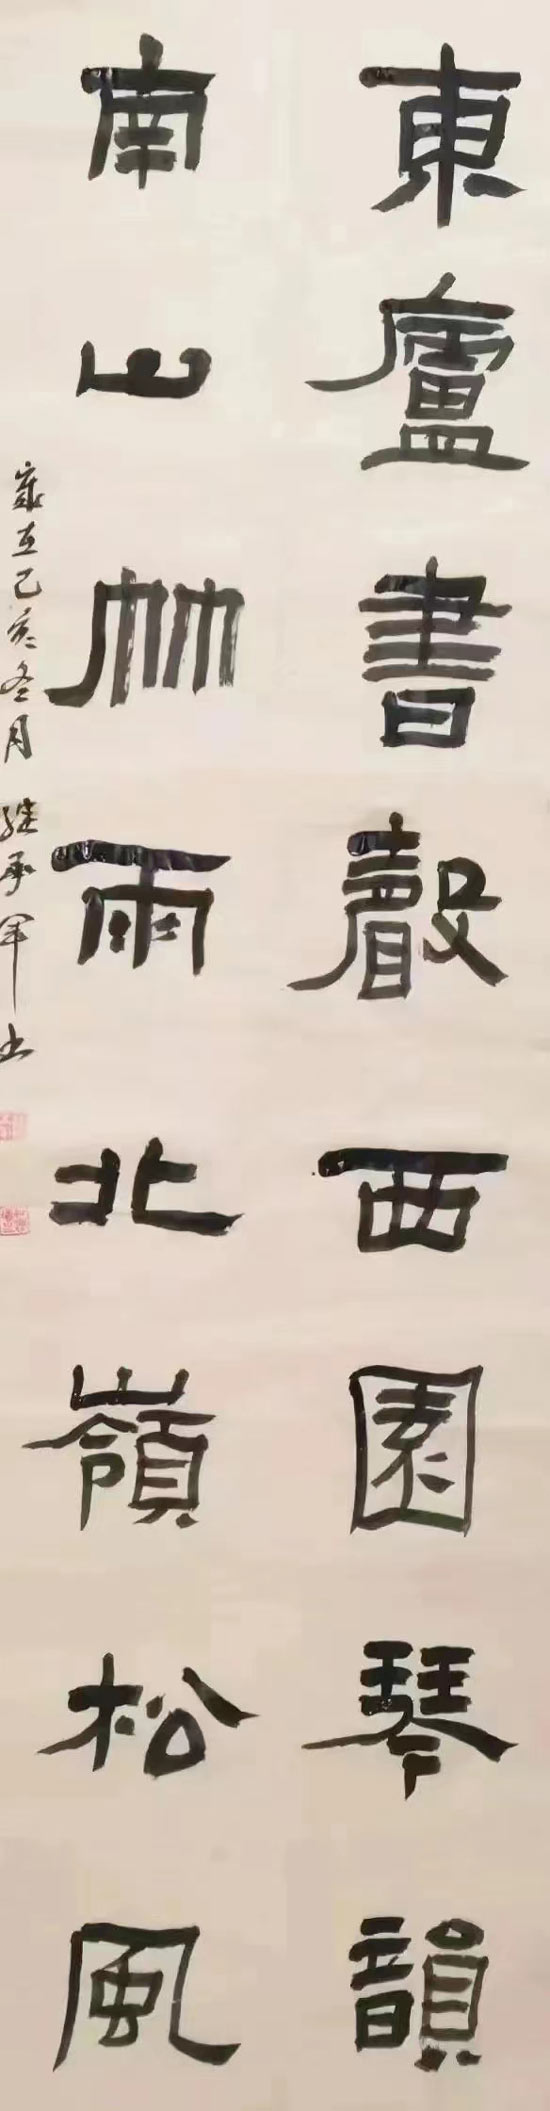 東廬書聲西園琴韻
南山竹雨北嶺松風
歲在己亥冬月 继承军书